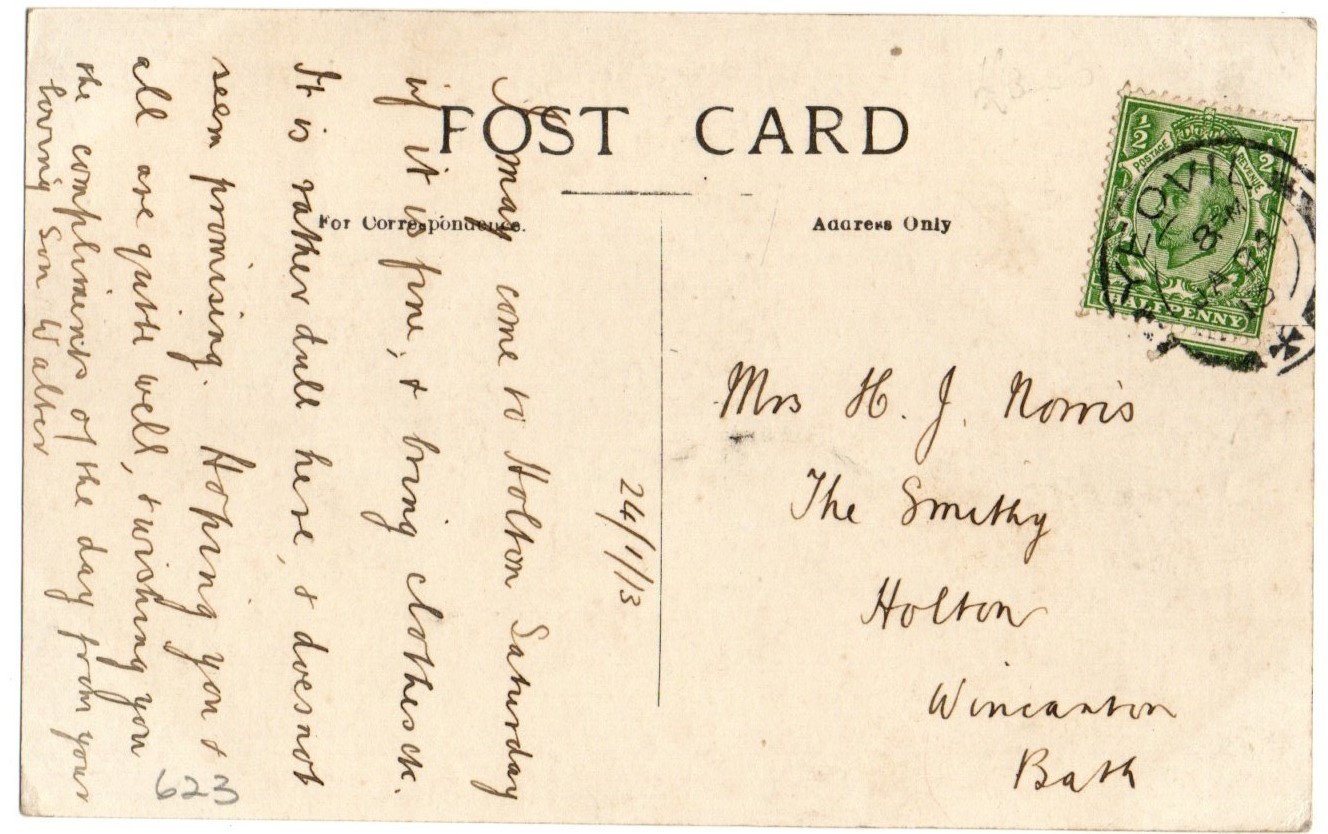 POST CARD
For Correspondence.
Address Only
24/1/13
I may come to Holton Saturday
if it is fine, & bring clothes ck.
It is rather dull here, & does not
seem promising. Hoping you &
all are quite well, & wishing you
the compliments of the day from your
loving Son Walter
Mrs H. J. Norris
The Smithy
Holton
Wincanton
Bath
623
½ ½
POSTAGE REVENUE
HALFPENNY
YEOVIL
8 PM
JA 24
13